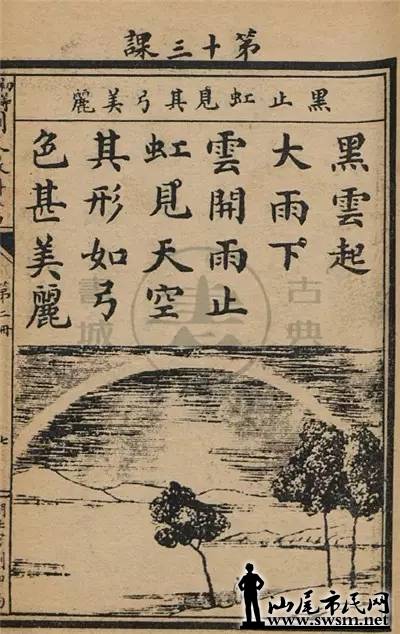 第十三課
黑止虹見其弓美麗
黑雲起
大雨下
雲開雨止
虹見天空
其形如弓
色甚美麗
第二冊
七
古典
書城
汕尾市民网
www.swsm.net